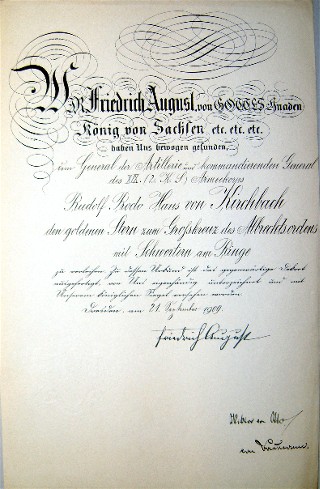 Wir Friedrich August, von GOTTES Gnaden
König von Sachsen etc. etc. etc.
haben Uns bewogen gefunden,
dem General der Artillerie und kommandierenden General
des XIX. (2. K. S.) Armeekorps
Hans von Kirchbach
den goldenen Stern zum Großkreuz des Albrechtsordens
mit Schwertern am Ringe
zu verleihen. Zu dessen Urkund ist das gegenwärtige Dekret
ausgefertigt, von Uns eigenhändig unterzeichnet und mit
Unserem Königlichen Siegel versehen worden.
Dresden, am 21. September 1909.
Friedrich August